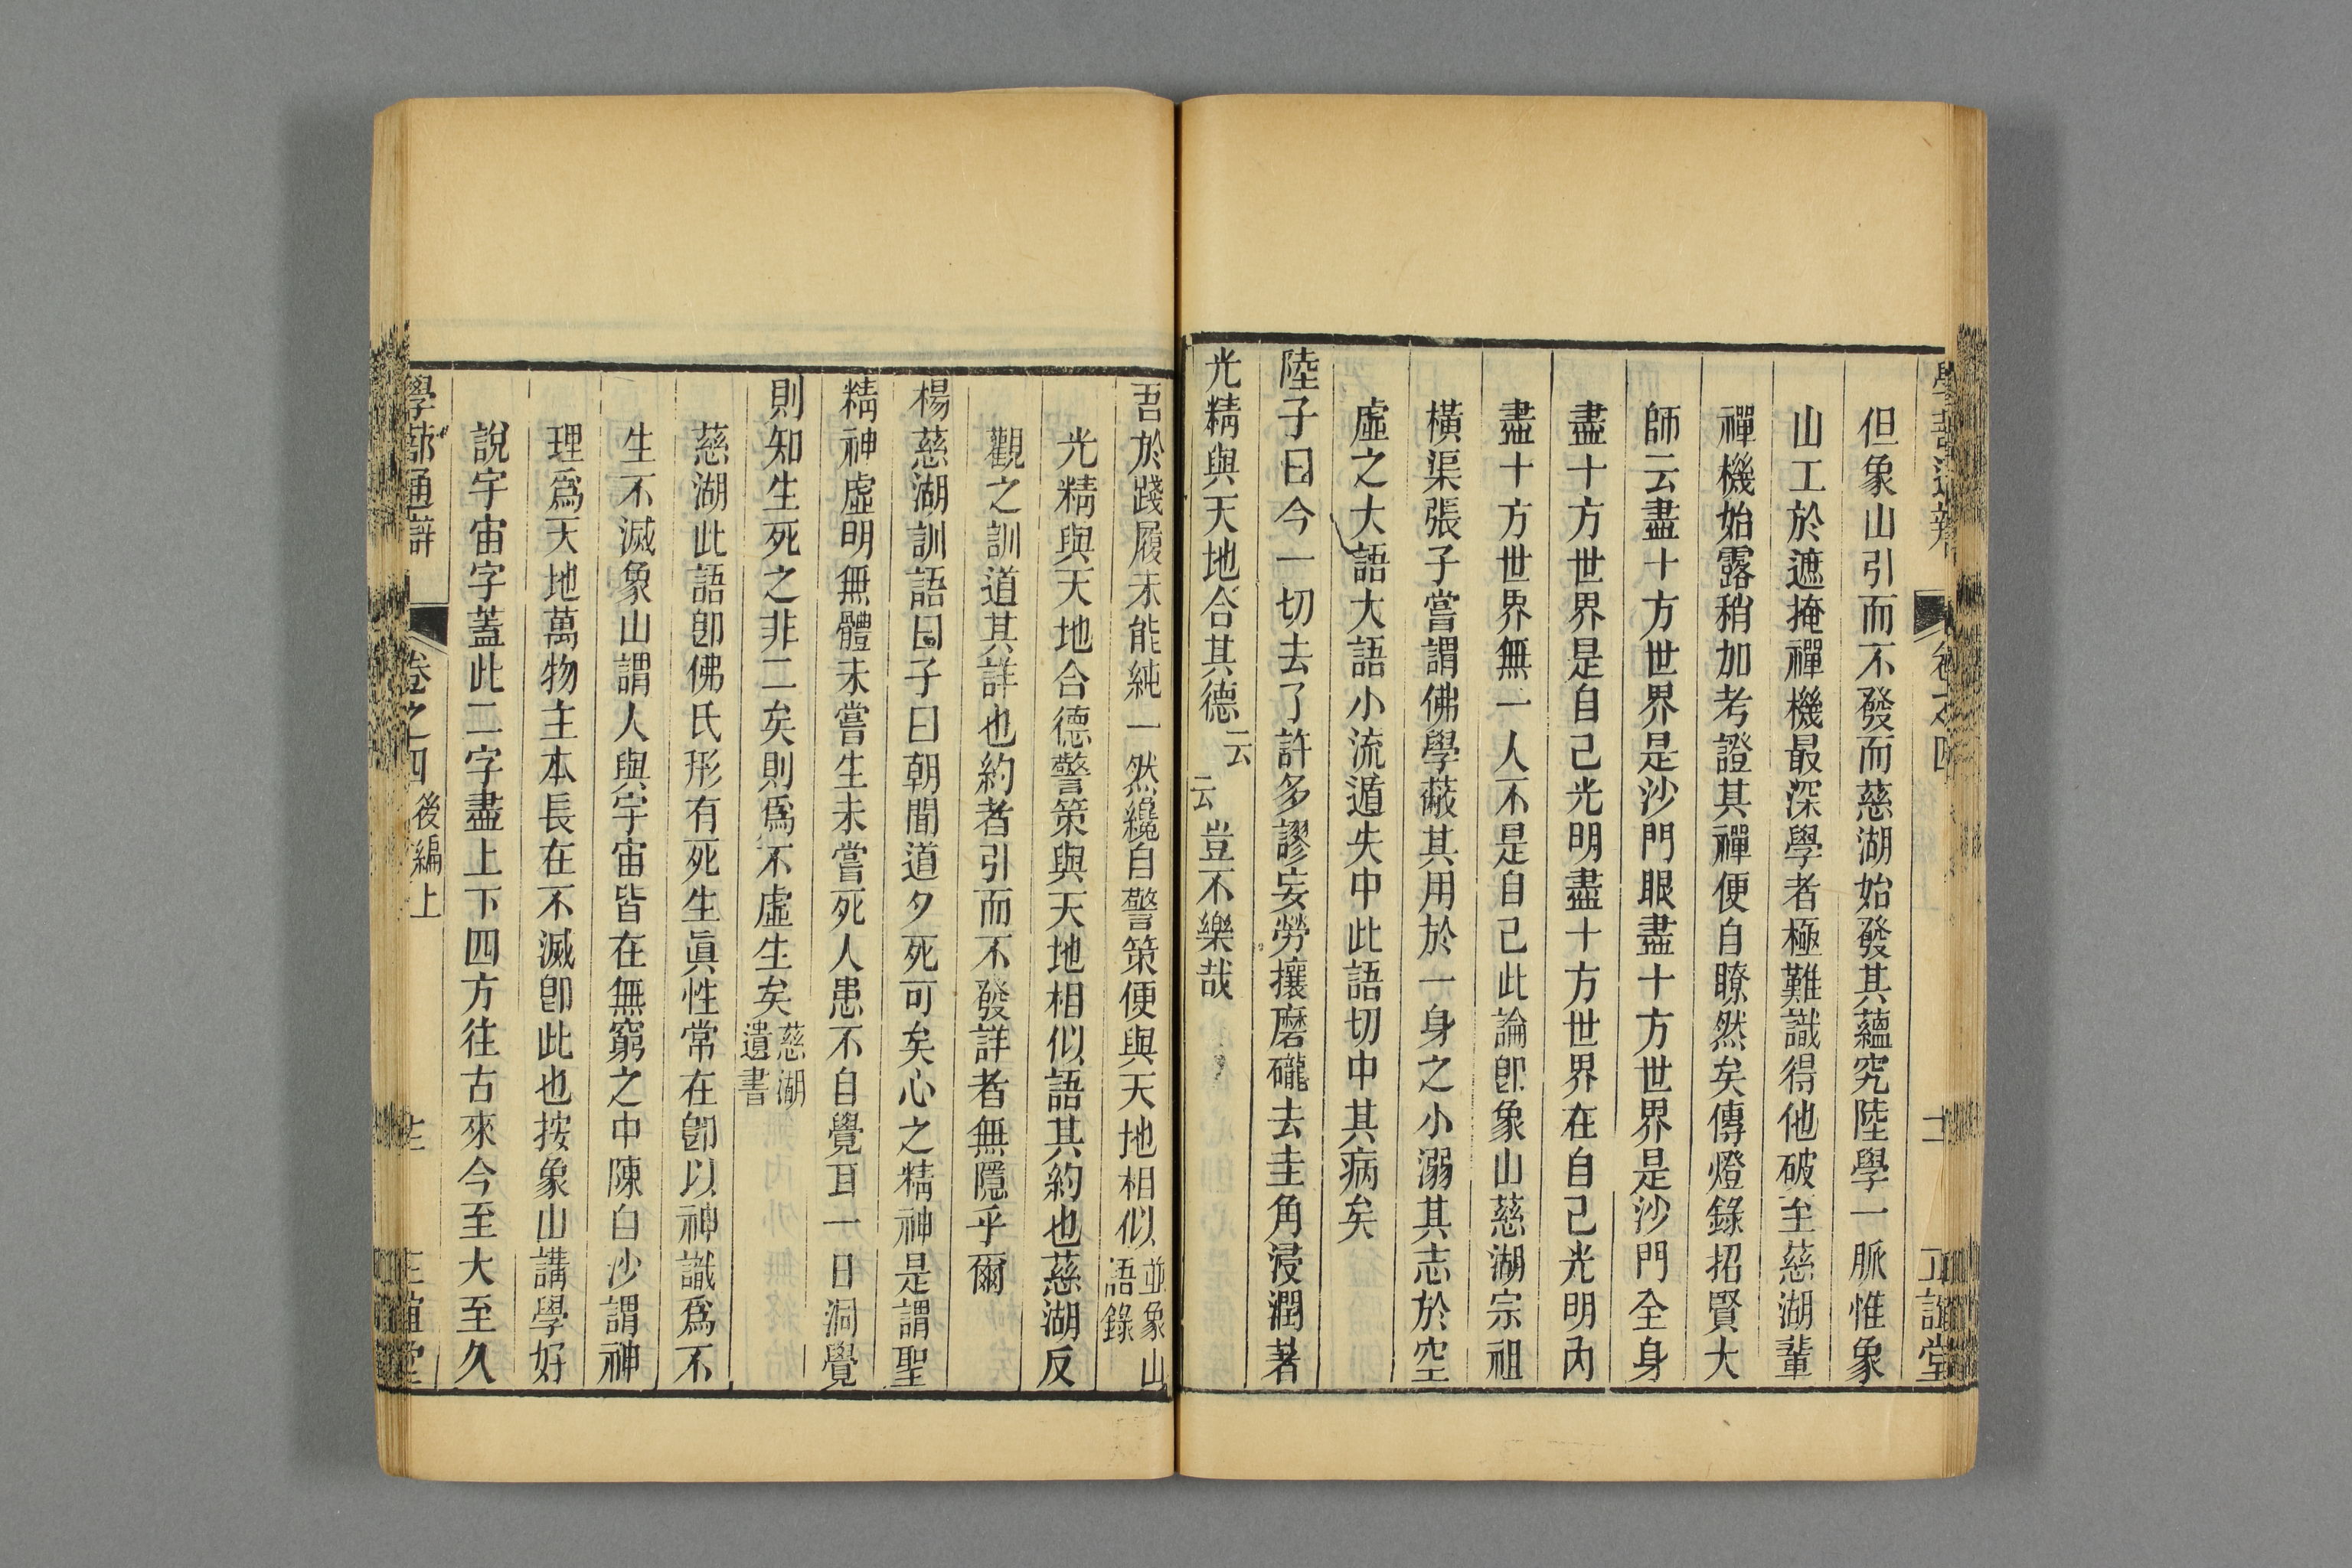 學蔀通辨
卷之四
十二
正誼堂
但象山引而不發而慈湖始發其蘊究陸學一脈惟象
山工於遮掩禪機最深學者極難識得他破至慈湖輩
禪機始露稍加考證其禪便自瞭然矣傳燈錄招賢大
師云盡十方世界是沙門眼盡十方世界是沙門全身
盡十方世界是自己光明盡十方世界在自己光明內
盡十方世界無一人不是自己此論卽象山慈湖宗祖
橫渠張子嘗謂佛學蔽其用於一身之小溺其志於空
虛之大語大語小流遁失中此語切中其病矣
陸子曰今一切去了許多謬妄勞攘磨礲去圭角浸潤著
光精與天地合其德云云豈不樂哉
吾於踐履未能純一然纔自警策便與天地相似並象山語錄
光精與天地合德警策與天地相似語其約也慈湖反
觀之訓道其詳也約者引而不發詳者無隱乎爾
楊慈湖訓語曰子曰朝聞道夕死可矣心之精神是謂聖
精神虛明無體未嘗生未嘗死人患不自覺耳一日洞覺
則知生死之非二矣則爲不虛生矣慈湖遺書
慈湖此語卽佛氏形有死生眞性常在卽以神識爲不
生不滅象山謂人與宇宙皆在無窮之中陳白沙謂神
理爲天地萬物主本長在不滅卽此也按象山講學好
說宇宙字蓋此二字盡上下四方往古來今至大至久
學蔀通辯
卷之四
後編上
正誼堂